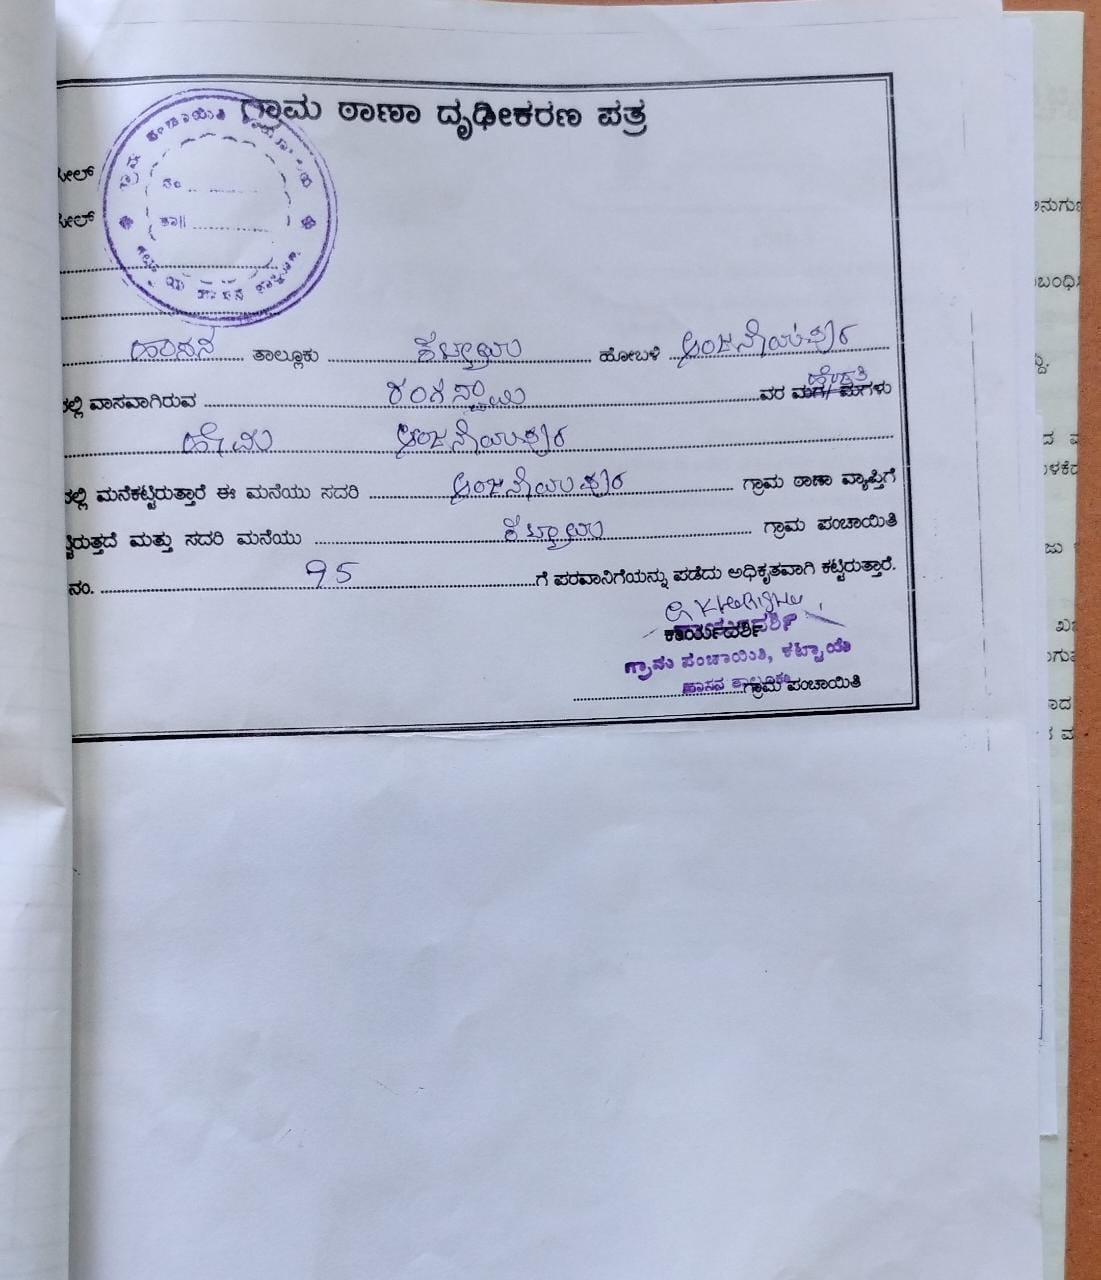 ಗ್ರಾಮ ಠಾಣಾ ದೃಢೀಕರಣ ಪತ್ರ
ಗ್ರಾಮ ಪಂಚಾಯಿತಿ
ನಂ
ತಾ||
ಹಾಸನ ತಾಲ್ಲೂಕು ಕಟ್ಟಾಯ ಹೋಬಳಿ ಆಂಜನೇಯಪುರ
ಲ್ಲಿ ವಾಸವಾಗಿರುವ ರಂಗಸ್ವಾಮಿ ವರ ಮಗ/ ಮಗಳು ಹೆಂಡತಿ
ಹೇಮ ಆಂಜನೇಯಪುರ
ಲ್ಲಿ ಮನೆಕಟ್ಟಿರುತ್ತಾರೆ ಈ ಮನೆಯು ಸದರಿ ಆಂಜನೇಯಪುರ ಗ್ರಾಮ ಠಾಣಾ ವ್ಯಾಪ್ತಿಗೆ
ಟ್ಟಿರುತ್ತದೆ ಮತ್ತು ಸದರಿ ಮನೆಯು ಕಟ್ಟಾಯ ಗ್ರಾಮ ಪಂಚಾಯಿತಿ
ನಂ. 95 ಗೆ ಪರವಾನಿಗೆಯನ್ನು ಪಡೆದು ಅಧಿಕೃತವಾಗಿ ಕಟ್ಟಿರುತ್ತಾರೆ.
ಕಾರ್ಯದರ್ಶಿ
ಗ್ರಾಮ ಪಂಚಾಯಿತಿ, ಕಟ್ಟಾಯ
ಹಾಸನ ತಾಲ್ಲೂಕು
ಗ್ರಾಮ ಪಂಚಾಯಿತಿ